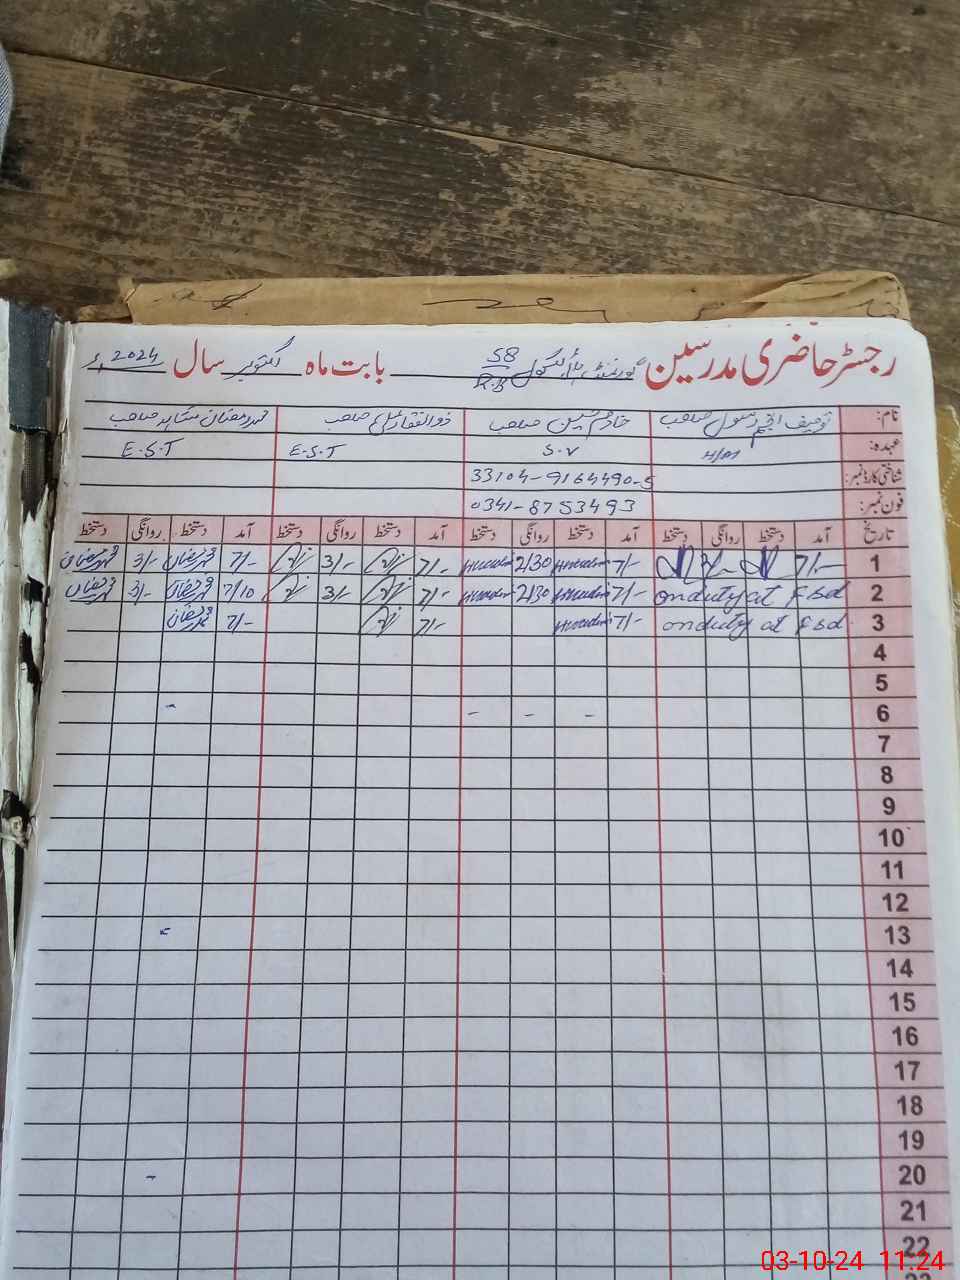 رجسٹر حاضری مدرسین گورنمنٹ ہائی سکول 58 R.B بابت ماہ اکتوبر سال 2024ء
نام: توصیف انجم رسول صاحب خادم حسین صاحب ذوالفقار علی صاحب محمد رمضان شاہد صاحب
عہدہ: S.V E.S.T E.S.T
شناختی کارڈ نمبر: 33104-9164490-5
فون نمبر: 0341-8753493
تاریخ آمد دستخط روانگی دستخط آمد دستخط روانگی دستخط آمد دستخط روانگی دستخط آمد دستخط روانگی دستخط
1 7/- 3/- 7/- 2/30 7/- 3/- 7/- محمد رمضان 3/- محمد رمضان
2 on duty at Fsd 7/- 2/30 7/- 3/- 7/10 محمد رمضان 3/- محمد رمضان
3 on duty at Fsd 7/- 7/- 7/- محمد رمضان
4
5
6 - - - -
7
8
9
10
11
12
13
14
15
16
17
18
19
20 -
21
22
03-10-24 11.24